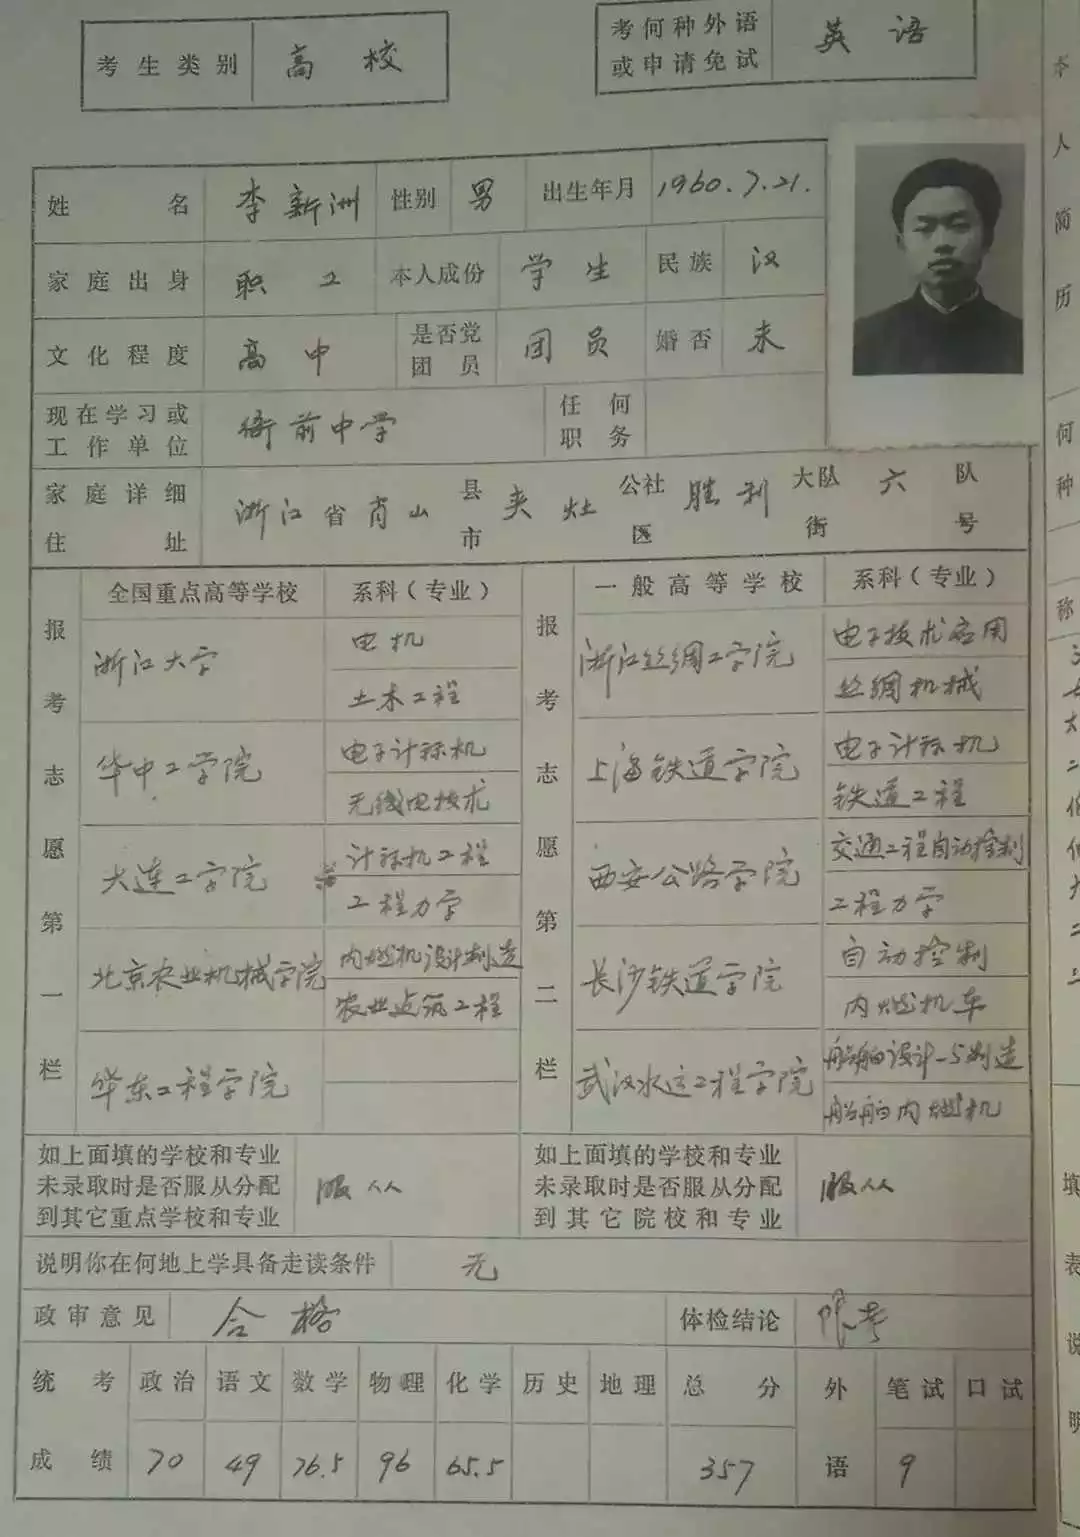 考生类别 高校
考何种外语或申请免试 英语
姓名 李新洲 性别 男 出生年月 1960.7.21.
家庭出身 职工 本人成份 学生 民族 汉
文化程度 高中 是否党团员 团员 婚否 未
现在学习或工作单位 衙前中学 任何职务
家庭详细住址 浙江省肖山县市 夹灶公社区 胜利大队街 六队号
报考志愿第一栏
全国重点高等学校 系科（专业）
浙江大学 电机
土木工程
华中工学院 电子计标机
无线电技术
大连工学院 计标机工程
工程力学
北京农业机械学院 内燃机设计制造
农业建筑工程
华东工程学院
报考志愿第二栏
一般高等学校 系科（专业）
浙江丝绸工学院 电子技术应用
丝绸机械
上海铁道学院 电子计标机
铁道工程
西安公路学院 交通工程自动控制
工程力学
长沙铁道学院 自动控制
内燃机车
武汉水运工程学院 船舶设计与制造
船舶内燃机
如上面填的学校和专业
未录取时是否服从分配
到其它重点学校和专业
服从
如上面填的学校和专业
未录取时是否服从分配
到其它院校和专业
服从
说明你在何地上学具备走读条件 无
政审意见 合格 体检结论 限考
统考 政治 语文 数学 物理 化学 历史 地理 总分 外语 笔试 口试
成绩 70 49 76.5 96 65.5 357 9
本人简历
何种
称
填表说明